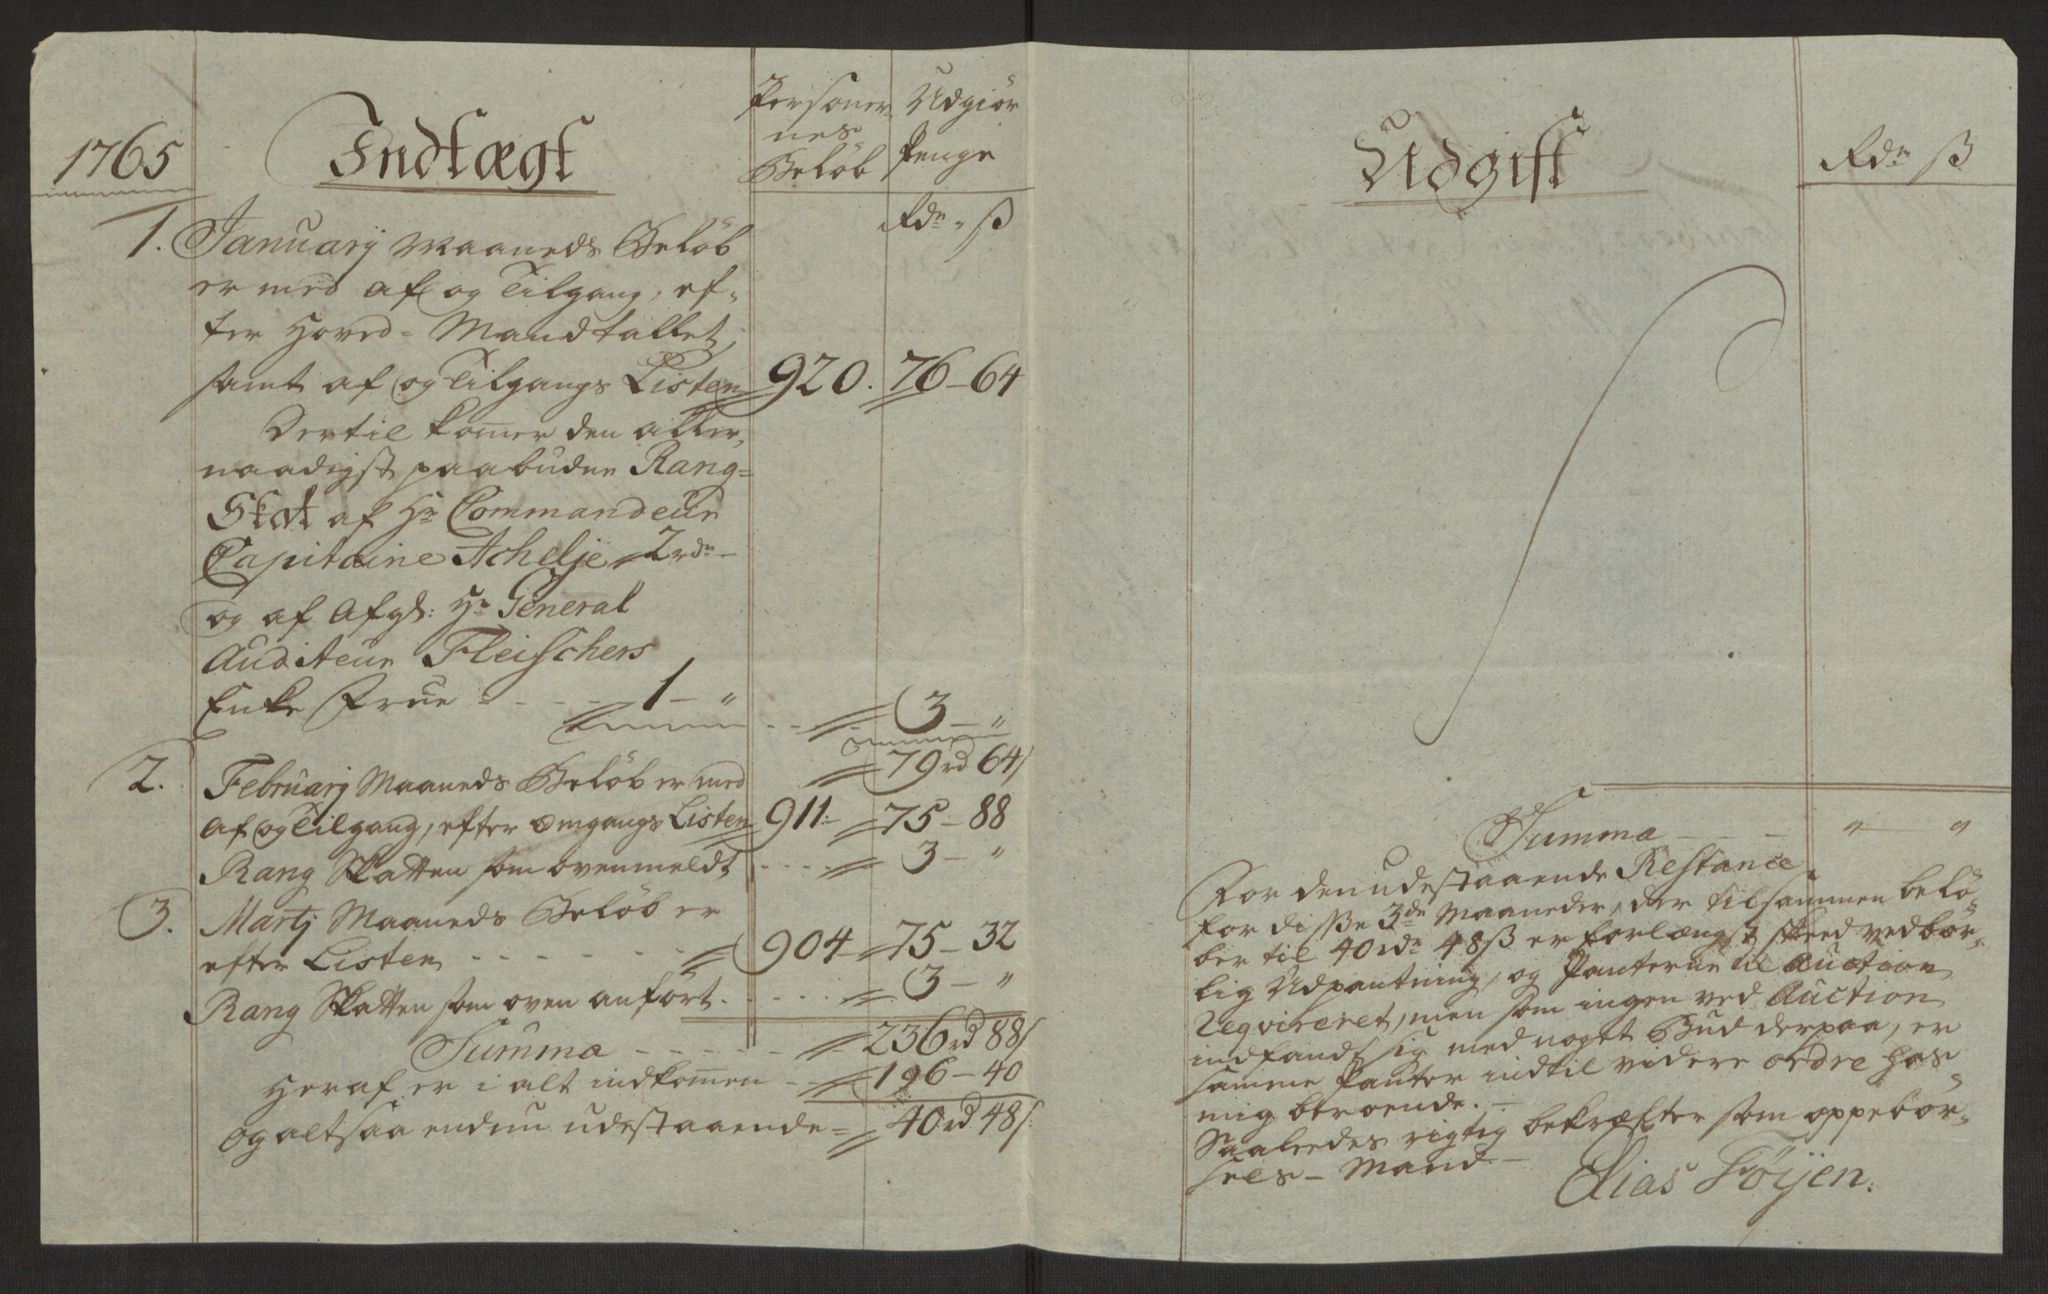 1765
Indtægt
Personer-
nes
Beløb
Udgiør
Penge
Rdr „ ß
1. Januarij Maaneds Beløb
er med af og Tilgang, ef-
ter Hoved-Mandtallet,
samt af og Tilgangs Listen 920. 76 – 64
Dertil komer den aller-
naadigst paabudne Rang-
Skat af Hr Commandeur
Capitaine Achelje 2 rdr –
og af Afgd: Hr General
Auditeur Fleischers
Enke Frue - - - - 1 – „ - - 3 – „
79 rd 64 ß
2. Februarij Maaneds Beløb er med
Af og Tilgang, efter omgangs Listen 911: 75 – 88
Rang Skatten som ovenmeldt - - - - 3 – „
3. Martij Maaneds Beløb er
efter Listen - - - - - - 904 75 – 32
Rang Skatten som oven anført - - - - 3 – „
Summa - - - - - 236 rd 88 ß
Heraf er i alt indkomen - - 196 – 40
Og altsaa endnu udestaaende = 40 rd 48 ß:
Udgift
Rdr ß
Summa - - - „ „
For den udestaaende Restance
for disse 3de Maaneder, der tilsammen belø-
ber til 40 rdr 48 ß er forlængst skeed vedbør-
lig Udpantning, og Panterne til Auction
Reqvireret, men som ingen ved Auction
indfandt sig med noget Bud derpaa, er
samme Panter indtil videre ordre hos
mig beroende. –
Saaleedes rigtig bekræfter som oppebør-
sels – Mand –
Elias Føyen.